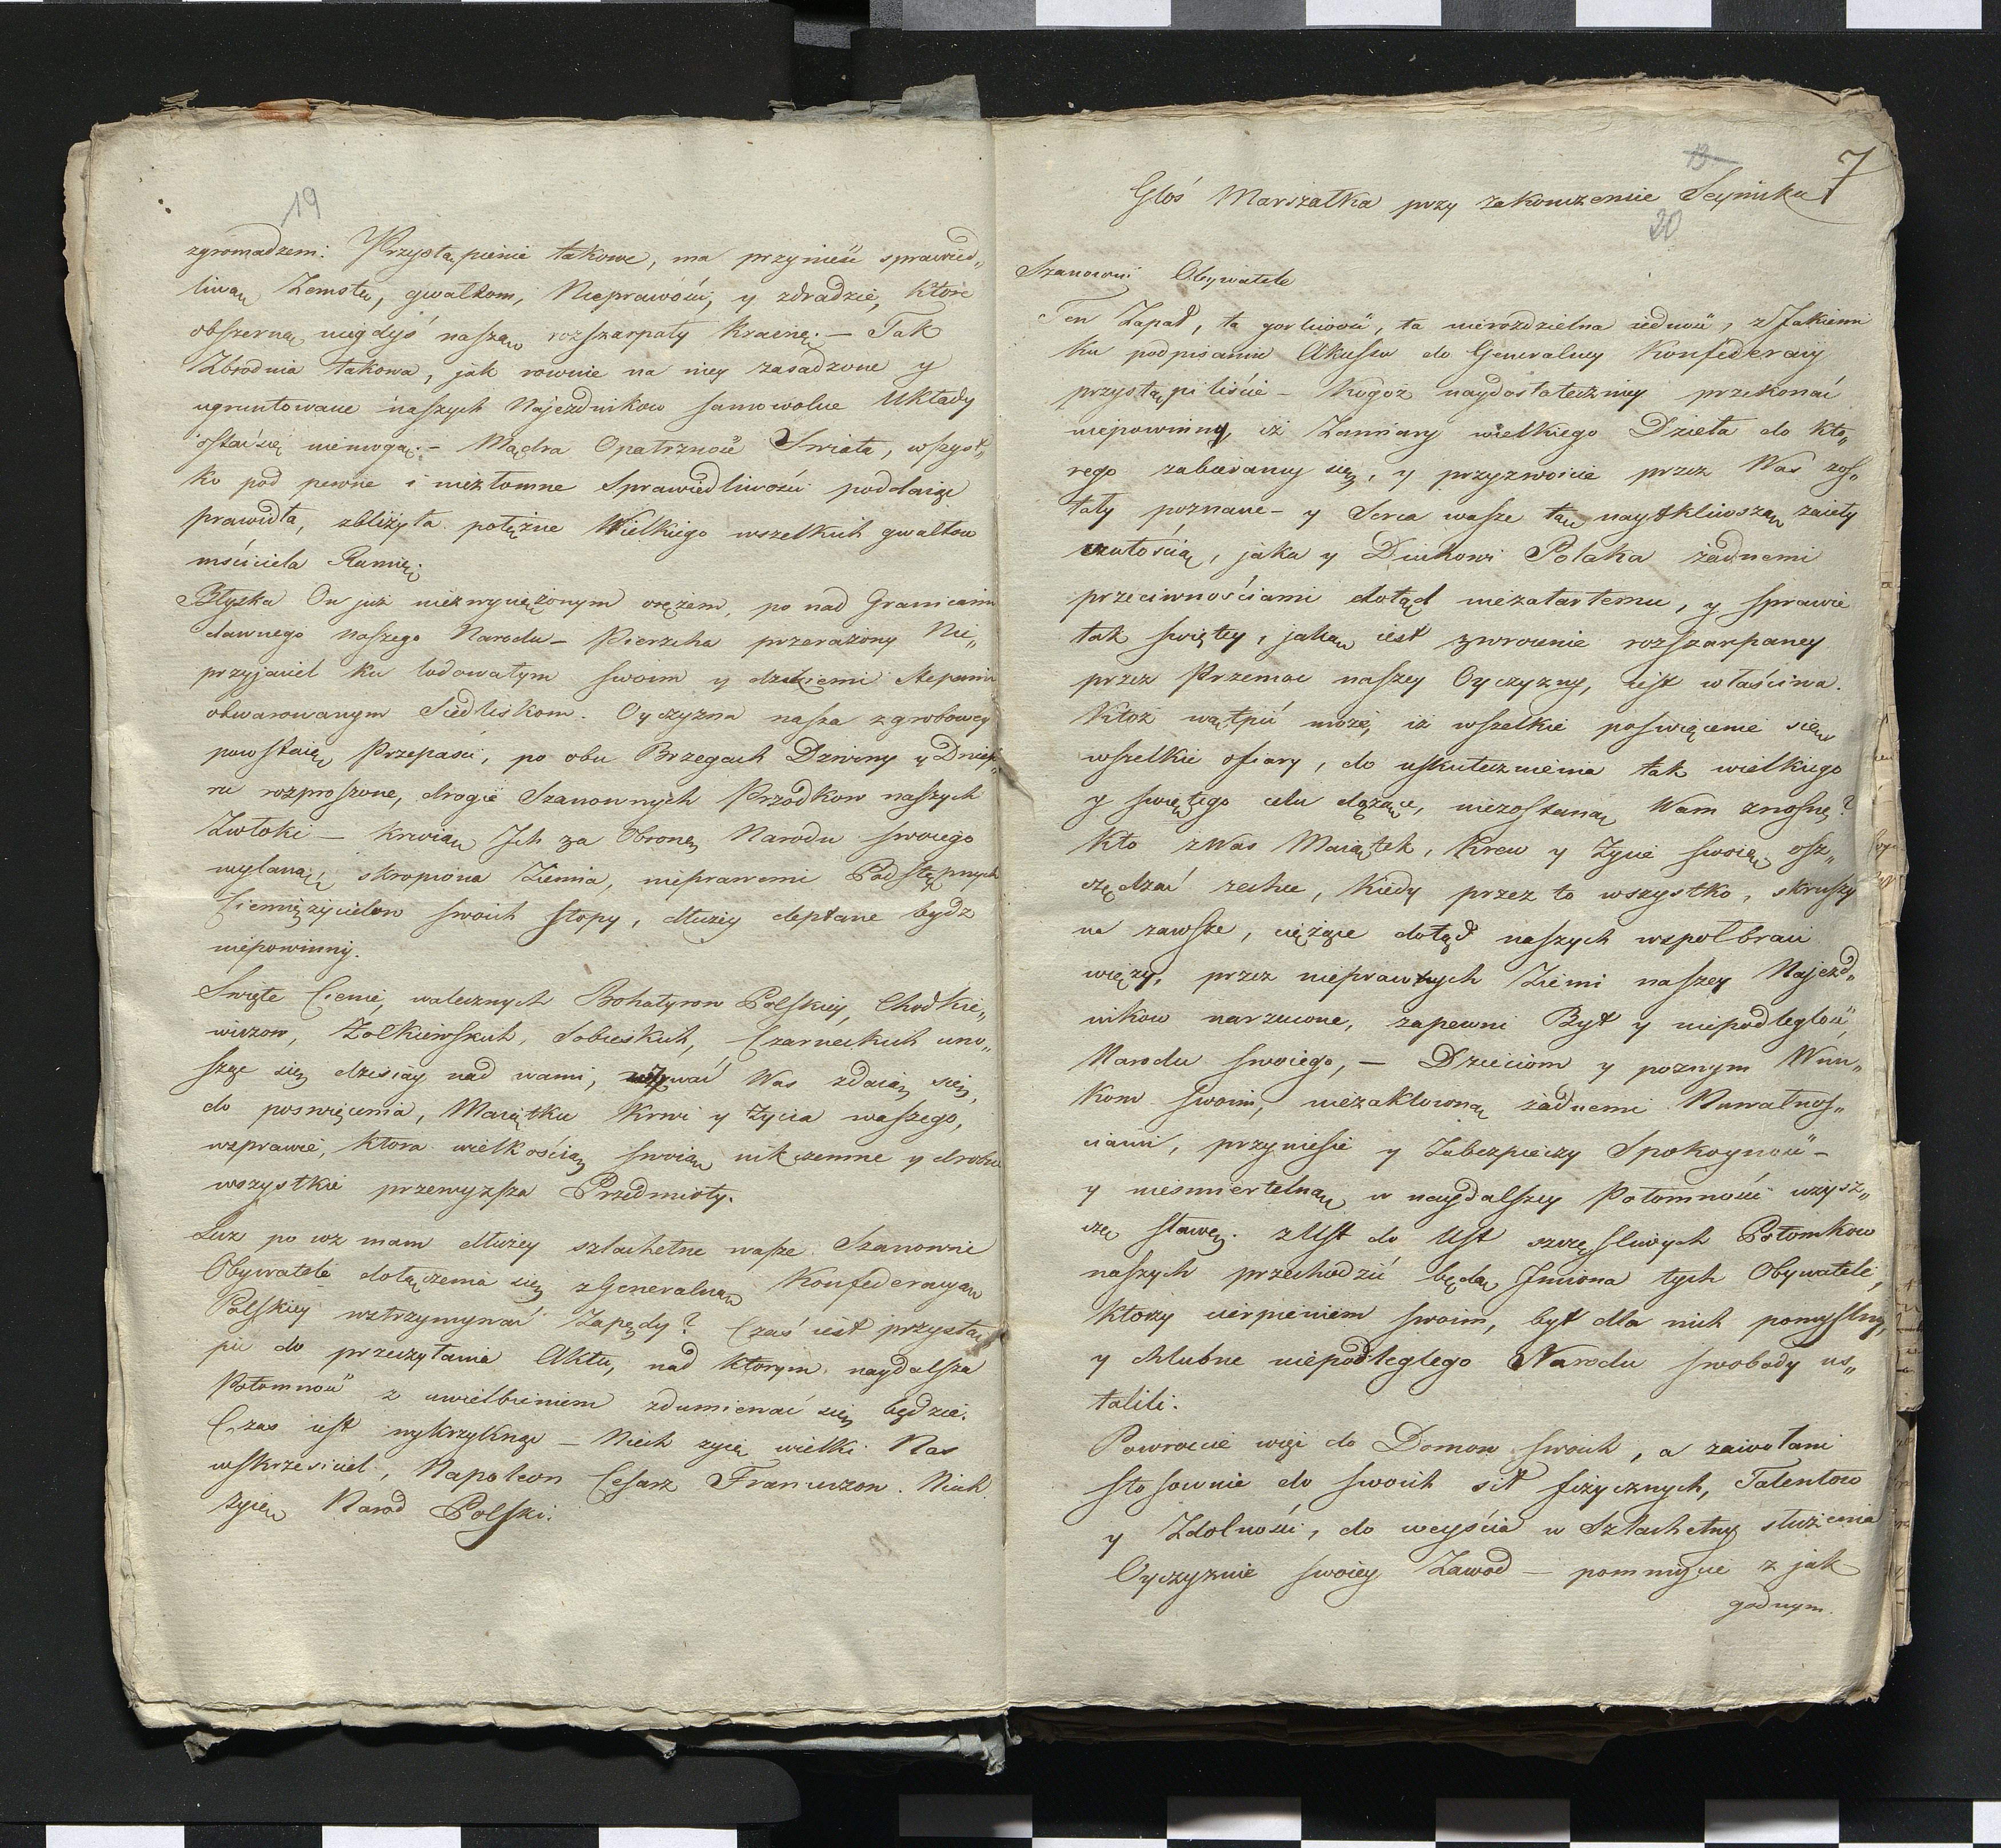 19
zgromadzeni. Przystąpienie takowe, ma przynieść sprawied„
liwą Zemstę, gwałtom, Nieprawości, y zdradzie, ktore
obszerną niegdyś naszą rozszarpały krainę. — Tak
Zbrodnia takowa, jak rownie na niey zasadzone y
ugruntowane naszych Najezdnikow samowolne Układy
ostać się niemogą. — Mądra Opatrzność Swiata, wszyst„
ko pod pewne i niezłomne Sprawiedliwości poddaiąc
prawidła, zbliżyła potężne Wielkiego wszelkich gwałtow
mściciela Ramię.
Błyska On już niezwyciężonym orężem, po nad Granicami
dawnego naszego Narodu — Pierzcha przerażony Nie„
przyjaciel ku lodowatym swoim y dzikiemi stepami
obwarowanym Siedliskom. Oyczyzna nasza z grobowey
powstaie Przepaści, po obu Brzegach Dzwiny y Dniep„
ru rozproszone, drogie Szanownych Przodkow naszych
Zwłoki — krwią Ich za Obronę Narodu swoiego
wylaną skropiona Ziemia, nieprawemi Podstępnych
Ciemięzycielow swoich stopy, dłużey deptane bydz
niepowinny.
Swięte Cienie, walecznych Bohatyrow Polskiey, Chodkie„
wiczow, Żołkiewskich, Sobieskich, Czarneckich uno„
sząc się dzisiay nad wami, wzywać Was zdaią się,
do poswięcenia, Maiątku Krwi y Życia waszego,
wsprawie, ktora wielkością swoią nikczemne y drobne
wszystkie przewyzsza Przedmioty.
Lecz po coz mam dłużey szlachetne wasze Szanowni
Obywatele dołączenia się z Generalną Konfederacyą
Polskiey wstrzymywać Zapędy? Czas iest przystą„
pić do przeczytania Aktu, nad ktorym naydalsza
Potomność z uwielbieniem zdumiewać się będzie.
Czas iest wykrzyknąć — Niech zyie wielki Nas
wskrzesiciel, Napoleon Cesarz Francuzow. Niech
zyie Narod Polski.
13
7
Głos Marszałka przy zakonczenie Seymiku
20
Szanowni Obywatele
Ten Zapał, ta gorliwość, ta nierozdzielna iedność, z Jakiemi
ku podpisaniu Akcessu do Generalney Konfederacyi
przystąpiliście — kogoż naydostateczniey przekonać
niepowinny, iż Zamiary wielkiego Dzieła do kto„
rego zabieramy się, y przyzwoicie przez Was zos„
tały poznane — y Serca wasze tą naytkliwszą zaięły
czułością, jaka y Duchowi Polaka żadnemi
przeciwnościami dotąd niezatartemu, y sprawie
tak świętey, jaką iest zwrocenie rozszarpaney
przez Przemoc naszey Oyczyzny, iest właściwa.
Ktoż wątpić może, iż wszelkie poswięcenie się
wszelkie ofiary, do uskutecznienia tak wielkiego
y świętego celu dążące, niezostaną Wam znosne?
Kto zWas Maiątek, Krew y Życie swoie osz„
czędzać zechce, kiedy przez to wszystko, skruszy
na zawsze, ciążące dotąd naszych wspołbraci
więzy, przez nieprawych Ziemi naszey Najezd„
nikow narzucone, zapewni Byt y niepodległość
Narodu swoiego, — Dzieciom y poznym Wnu„
kom swoim, niezakłoconą żadnemi Nawałnoś„
ciami, przyniesie y Zabezpieczy Spokoyność —
y niesmiertelną w naydalszey Potomności uzysz„
cze sławę. z Ust do Ust szczęsliwych Potomkow
naszych przechodzić będą Jmiona tych Obywateli,
ktorzy cierpieniem swoim, byt dla nich pomyslny,
y chlubne niepodległego Narodu swobody us„
talili.
Powroćcie więc do Domow swoich, a zawołani
stosownie do swoich sił fizycznych, Talentow
y Zdolności, do weyścia w Szlachetny służenia
Oyczyznie swoiey Zawod — pomniąc z jak
godnym